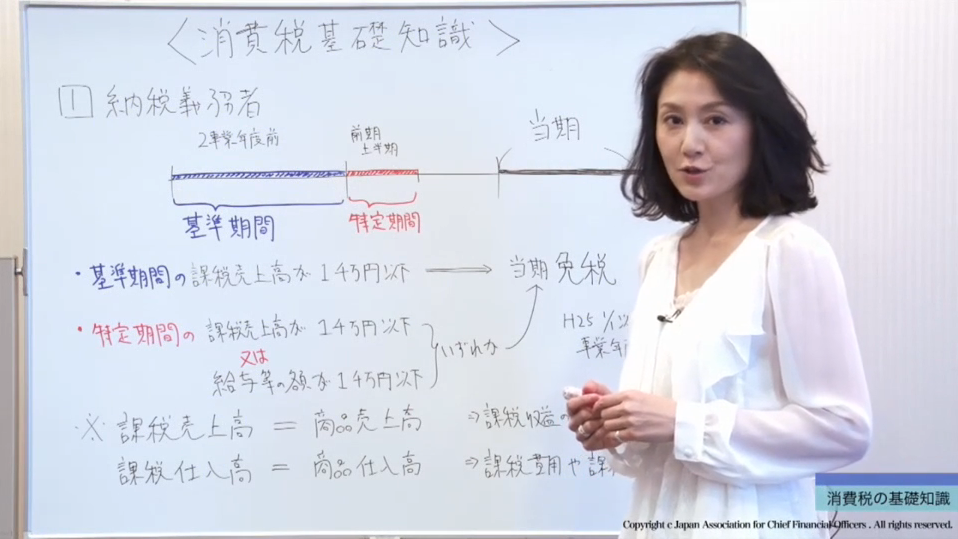 〈消費税基礎知識〉
1 納税義務者
2事業年度前
前期
上半期
当期
基準期間
特定期間
・基準期間の課税売上高が1千万円以下 ⟹ 当期免税
・特定期間の課税売上高が1千万円以下
又は
給与等の額が1千万円以下
いずれか
H25 1/1
事業年
※ 課税売上高 = 商品売上高 ⇒課税収益の
課税仕入高 = 商品仕入高 ⇒課税費用や課
消費税の基礎知識
Copyright c Japan Association for Chief Financial Officers . All rights reserved.